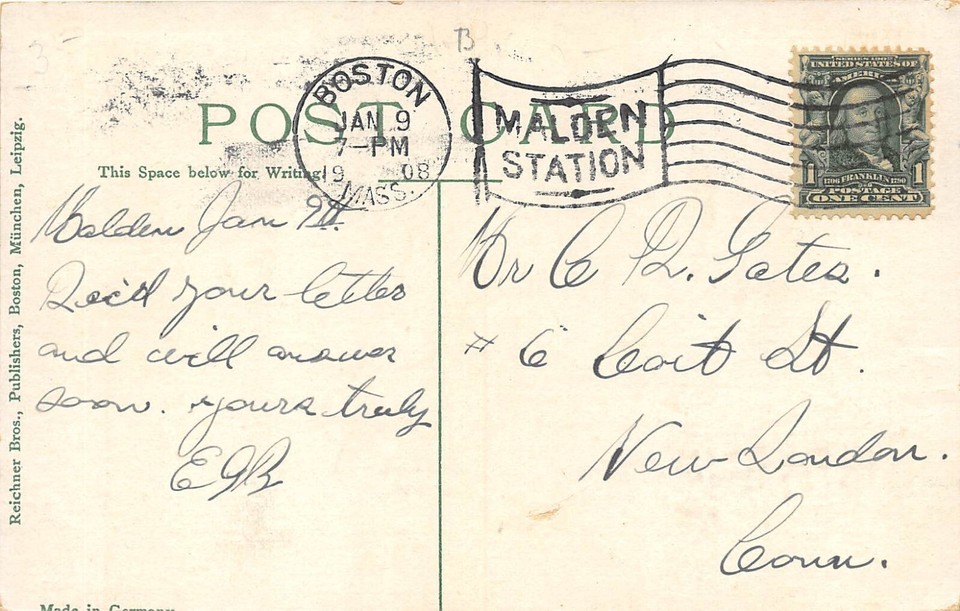 B
POST CARD
This Space below for Writing
BOSTON
JAN 9
7-PM
19 08
MASS.
MALDEN
STATION
SERIES 1902
UNITED STATES OF
AMERICA
1 1790 FRANKLIN 1790 1
POSTAGE
ONE CENT
Reichner Bros., Publishers, Boston, München, Leipzig.
Malden Jan 9th
Rec'd your letter
and will answer
soon. yours truly
EGB
Mr C R. Gates.
# 6 Coit St.
New London.
Conn.
Made in Germany